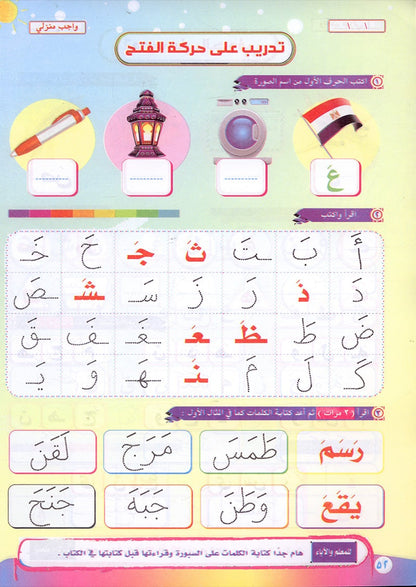 ١ ١
واجب منزلي
تدريب على حركة الفتح
١ اكتب الحرف الأول من اسم الصورة
عَ
٢ اقرأ واكتب
أَ بَ تَ ثَ جَ حَ خَ
دَ ذَ رَ زَ سَ شَ صَ
ضَ طَ ظَ عَ غَ فَ قَ
كَ لَ مَ نَ هَ وَ يَ
٣ اقرأ ( ٣ مرات ) ثم أعد كتابة الكلمات كما في المثال الأول :
رَسَمَ طَمَسَ مَرَجَ لَفَنَ
يَقَعَ وَطَنَ جَبَهَ جَنَحَ
للمعلم والأباء
هام جدًا كتابة الكلمات على السبورة وقراءتها قبل كتابتها في الكتاب .
٥٢